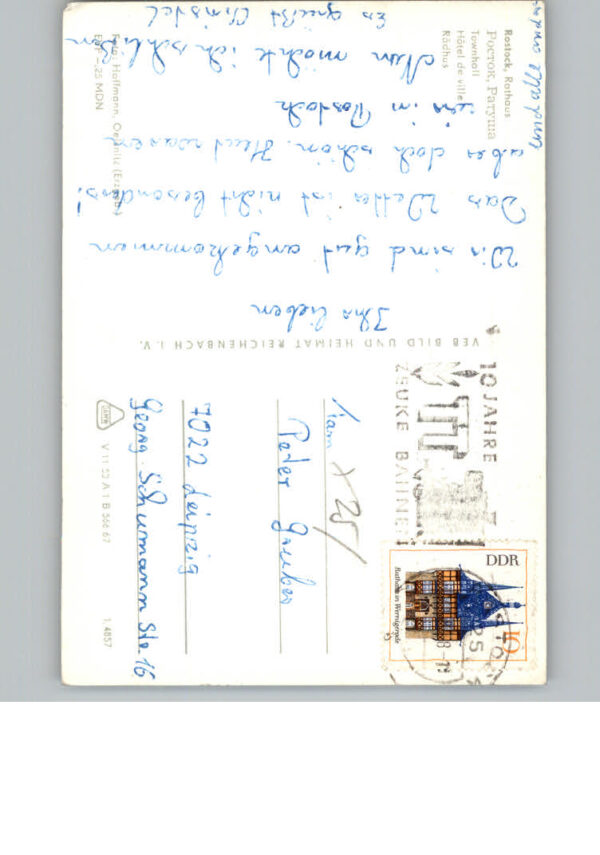 Rostock, Rathaus
Росток, Ратуша
Townhall
Hôtel de ville
Rådhus
Ihr lieben
Wir sind gut angekommen
Das Wetter ist nicht besonders!
aber doch schön. Heut waren
wir in Rostock
Nun möchte ich schließen
Es grüßt Christel
und alle andern
Foto: Hoffmann, Oelsnitz (Erzgeb.)
EVP -,25 MDN
VEB BILD UND HEIMAT REICHENBACH I. V.
10 JAHRE
ZEUKE BAHNEN
DDR
Rathaus in Wernigerode
10
Fam
x 25/
Peter Gruber
7022 Leipzig
Georg-Schumann Str. 16
V 11 50 A 1 B 566 67
1, 4857